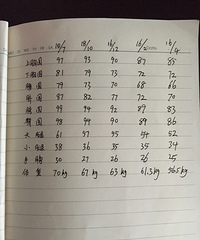 上胸围 97 93 90 87 85
下胸围 81 79 73 72 72
腰围 79 73 70 68 66
围 87 82 77 72 70
围 99 94 92 89 83
臀围 98 94 90 89 86
大腿 61 57 55 54 52
小腿 38 36 35 35 34
手臂 30 27 26 26 25
体重 70kg 67kg 63kg 61.5kg 56.5kg